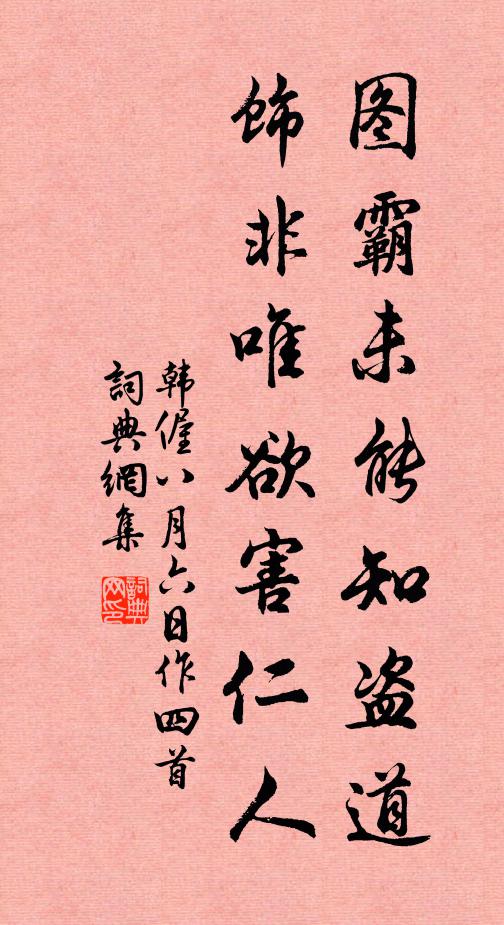 图霸未能知盗道
饰非唯欲害仁人
韩偓八月六日作四首
詞典網集
詞典
网印